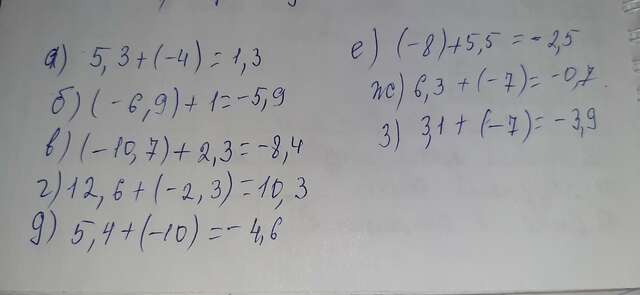 а) 5,3+(-4)=1,3
б) (-6,9)+1=-5,9
в) (-10,7)+2,3=-8,4
г) 12,6+(-2,3)=10,3
д) 5,4+(-10)=-4,6
е) (-8)+5,5=-2,5
ж) 6,3+(-7)=-0,7
з) 3,1+(-7)=-3,9